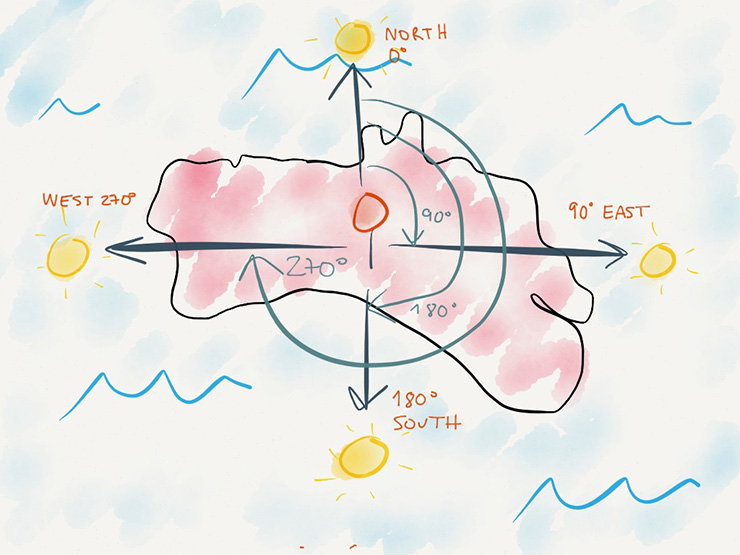 NORTH
0°
WEST 270°
90° EAST
90°
270°
180°
180°
SOUTH